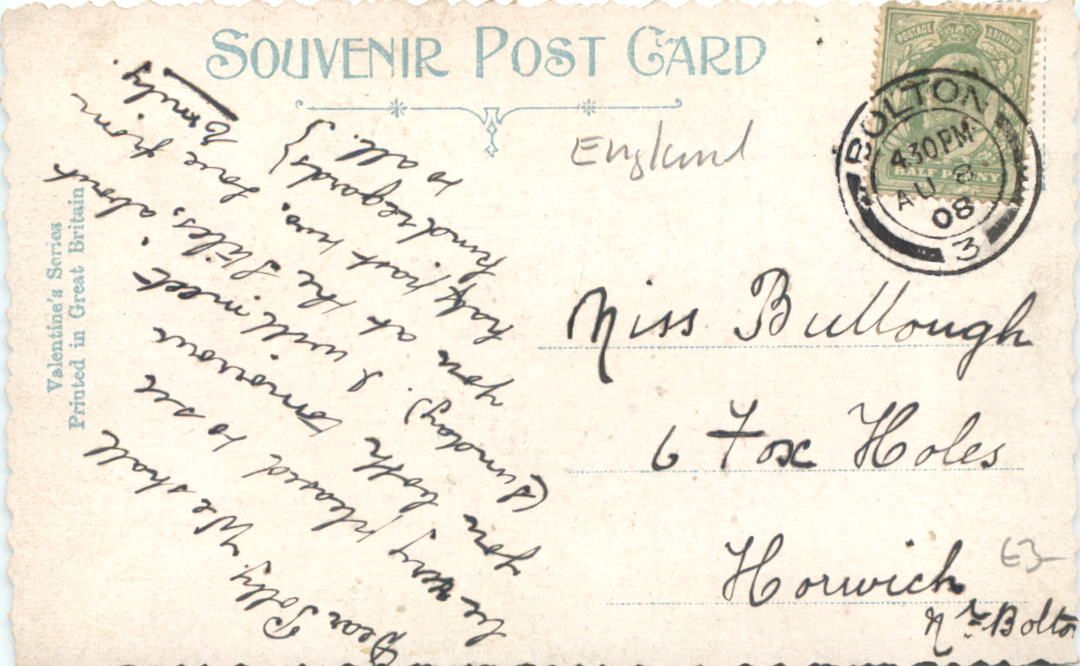 SOUVENIR POST CARD
England
POSTAGE REVENUE
HALF PENNY
BOLTON
4.30PM
AU 8
08
3
Valentine's Series
Printed in Great Britain
Dear Polly, We shall
be very pleased to see
you both tomorrow
(Sunday). I will meet
you at the Stiles, about
half past two. Love from
kind regards} Emily.
to all.
Miss Bullough
6 Fox Holes
Horwich
Nr Bolton
£3-